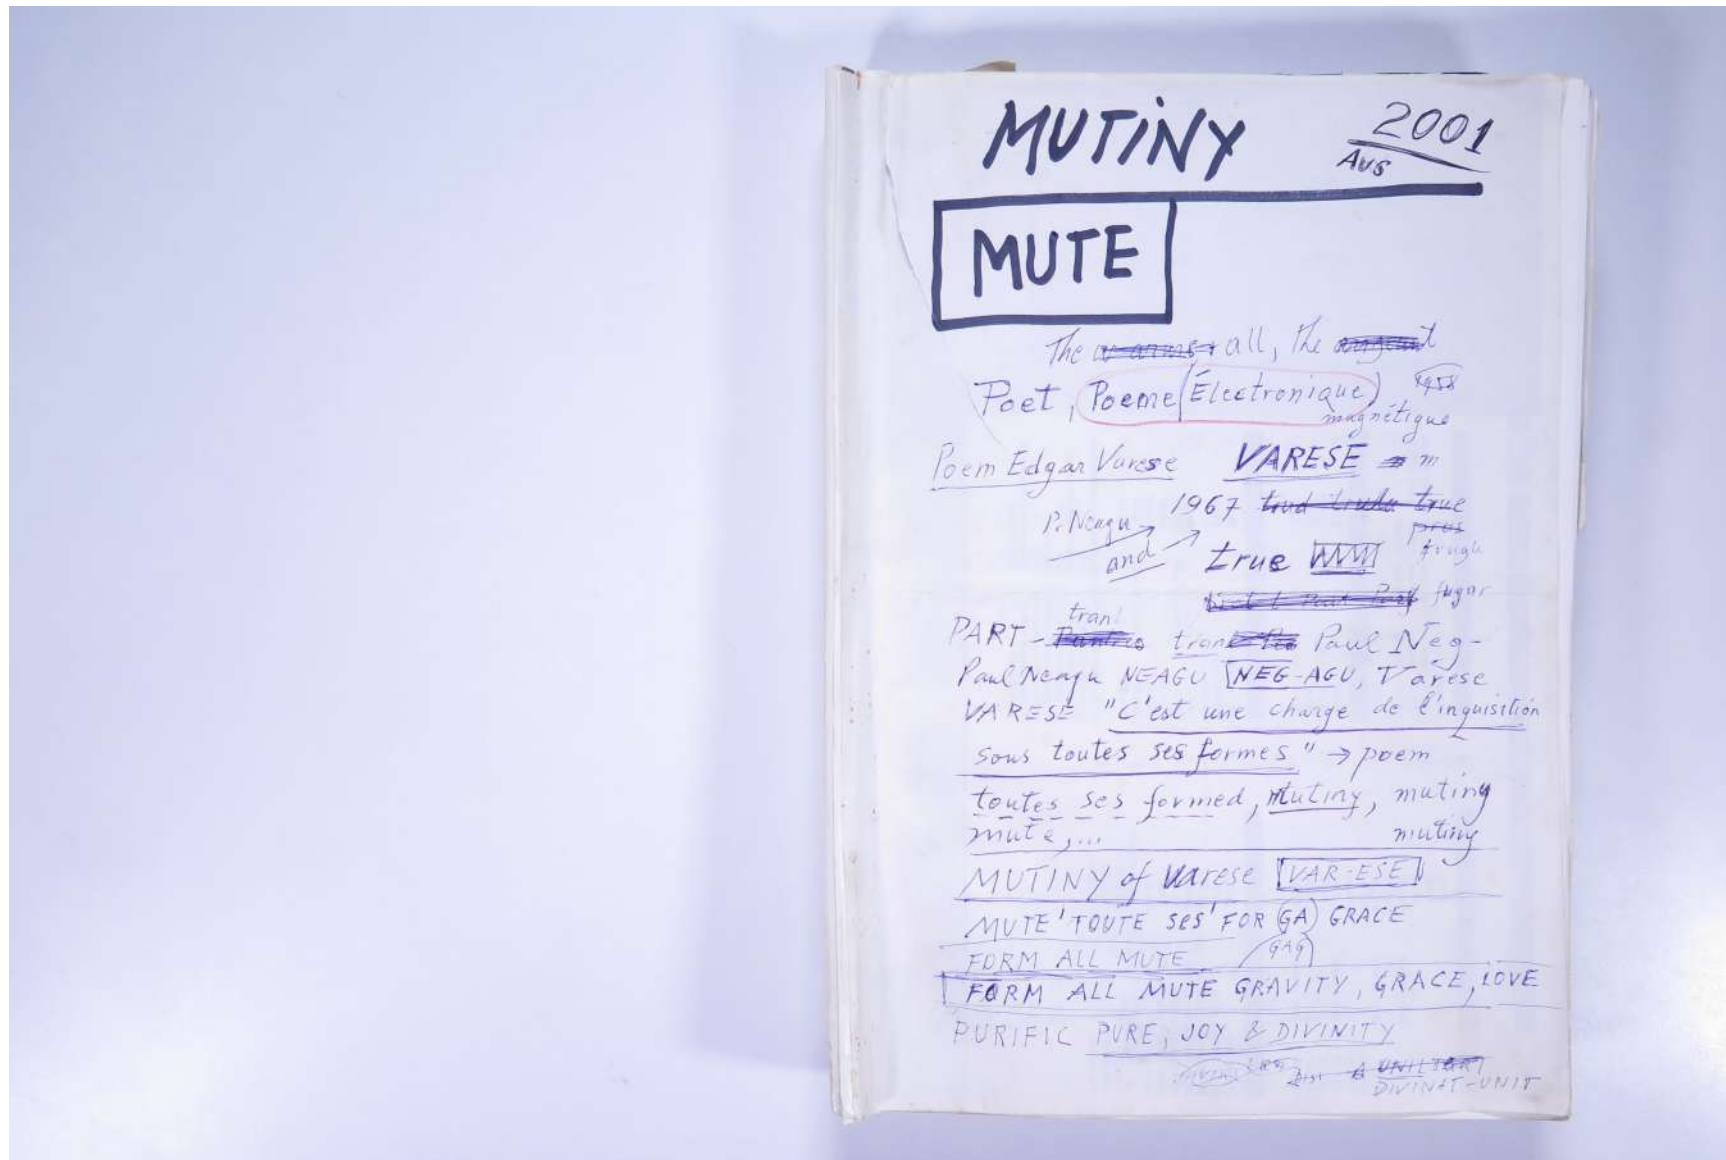 MUTINY 2001
AUS
MUTE
The all, the
Poet, Poeme (Électronique) 1958
magnétique
Poem Edgar Varese VARESE m
1967 trud true
P. Neagu
and true
fugar
tran
PART - tran Paul Neg-
Paul Neagu NEAGU NEG-AGU, Varese
VARESE "C'est une charge de l'inquisition
sous toutes ses formes" → poem
toutes ses formed, Mutiny, muting
mute,... muting
MUTINY of Varese VAR-ESE
MUTE 'TOUTE SES' FOR (GA) GRACE
FORM ALL MUTE GAG
FORM ALL MUTE GRAVITY, GRACE, LOVE
PURIFIC PURE, JOY & DIVINITY
DIVINAT-UNIT